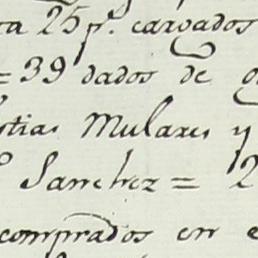 25 p.s cargados
= 39 dados de
Mulares y
Sanchez = 2
comprados en e